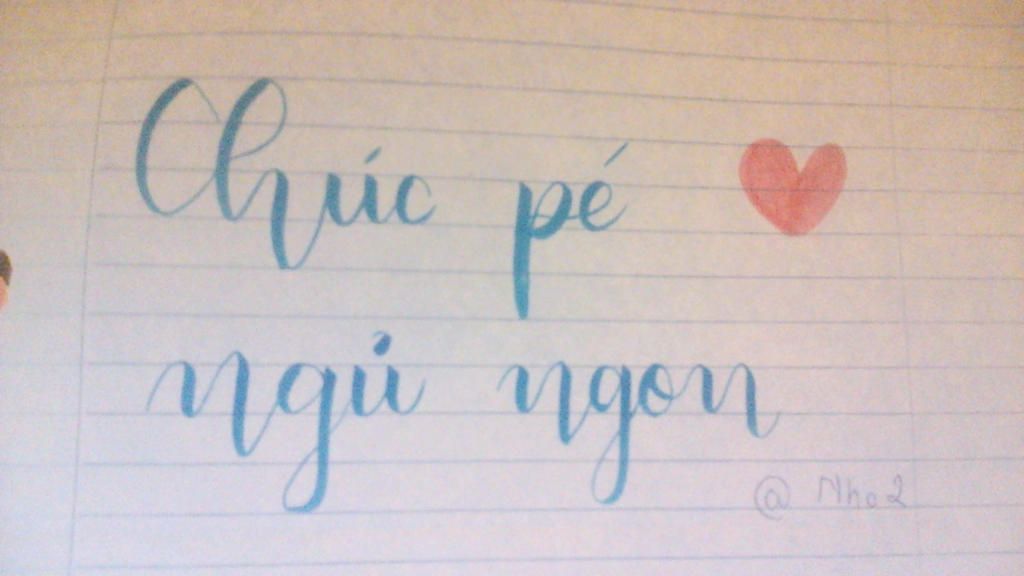 Chúc pé
ngủ ngon
@ Nho2